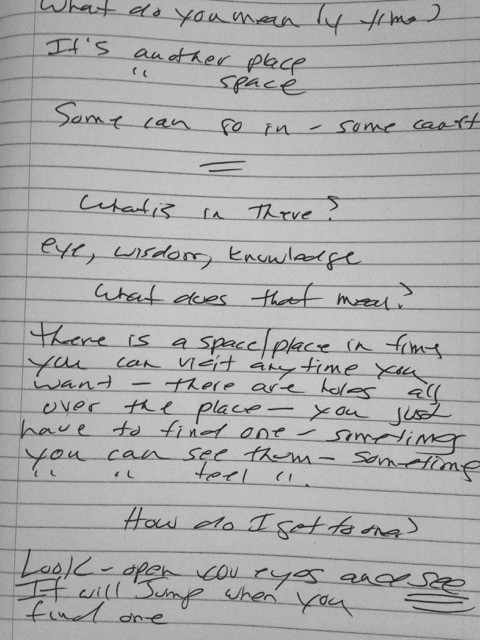 What do you mean by time?
It's another place
" space
Some can go in - some can't
What is in there?
eye, wisdom, knowledge
What does that mean?
there is a space/place in time
you can visit anytime you
want - there are holes all
over the place - you just
have to find one - sometimes
you can see them - sometimes
" " feel ".
How do I get to one?
Look - open you eyes and see
It will Jump when you
find one